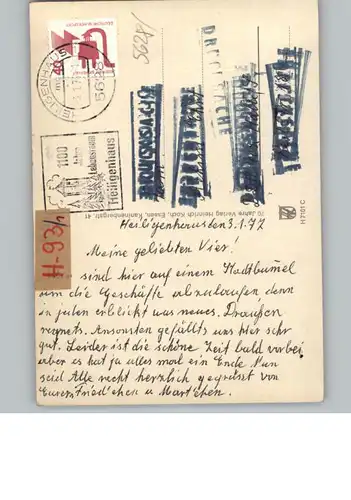 5628/1
HEILIGENHAUS
5628
40
DEUTSCHE BUNDESPOST
1100 Jahre
Lebensraum
Heiligenhaus
H-93/1
70 Jahre Verlag Heinrich Koch, Essen, Kaninenbergstr. 41
H 7101 C
Heiligenhaus den 3.1.77
Meine geliebten Vier.
sind hier auf einem Stadtbumel
um die Geschäfte abzulaufen denn
in jeden erblickt was neues. Draußen
regnets. Ansonsten gefällts uns hier sehr
gut. Leider ist die schöne Zeit bald vorbei
aber es hat ja alles mal ein Ende Nun
seid Alle recht herzlich gegrüßt von
Euren Fried'chen u Mart'chen.